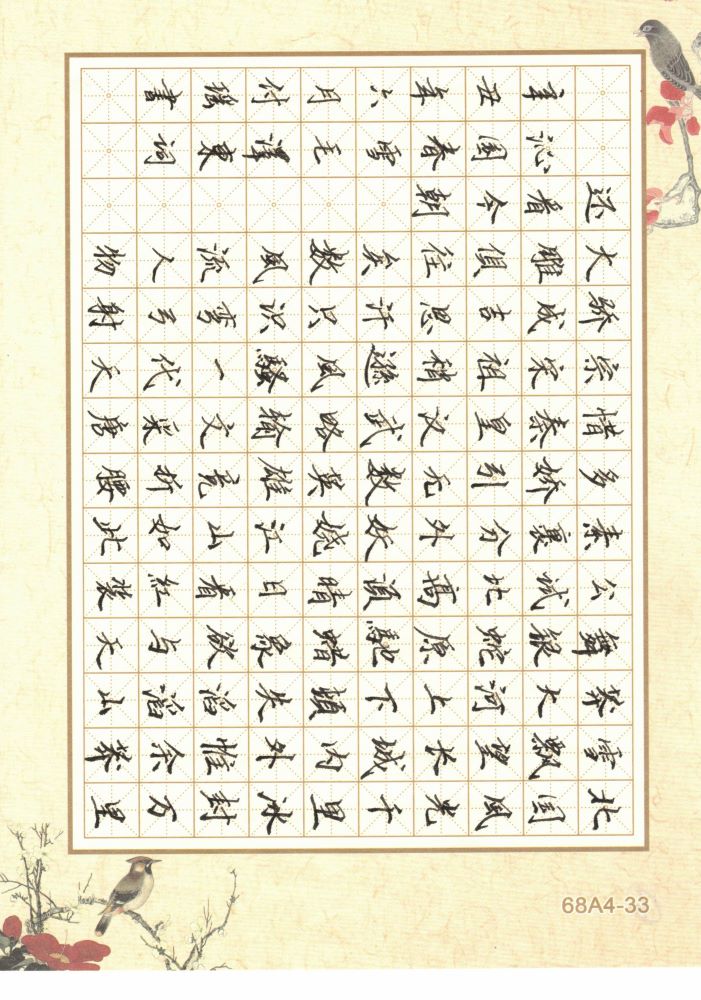 北国風光千里冰封万里
雪飄望长城内外惟余莽
莽大河上下頓失滔滔山
舞銀蛇原馳蜡象欲与天
公試比高須晴日看紅装
素裹分外妖嬈江山如此
多娇引无数英雄竞折腰
惜秦皇汉武略輸文采唐
宗宋祖稍遜風騷一代天
骄成吉思汗只识弯弓射
大雕俱往矣数風流人物
还看今朝
沁園春雪毛澤東词
辛丑年六月付書
68A4-33